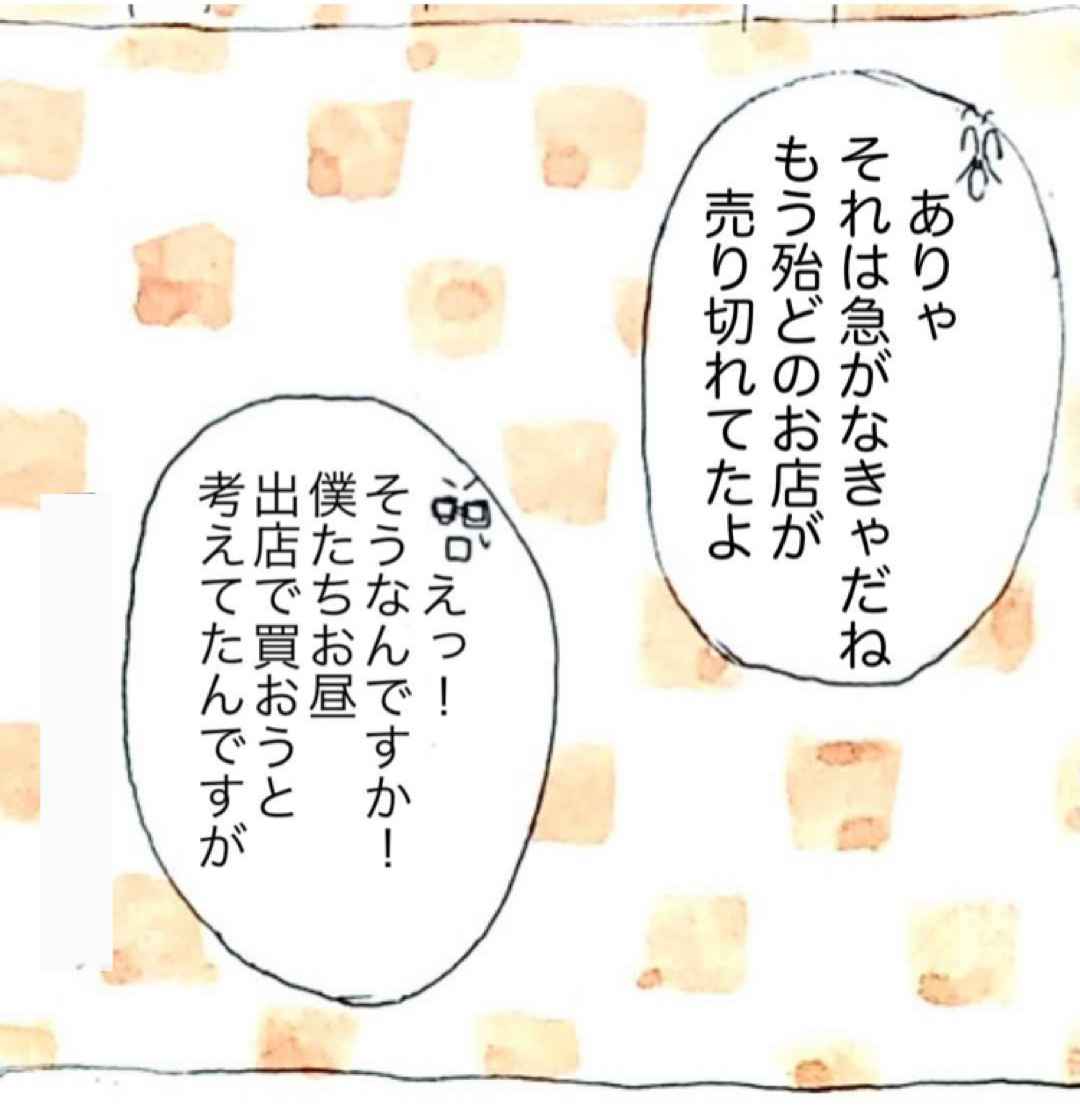 ありゃ
それは急がなきゃだね
もう殆どのお店が
売り切れてたよ
えっ！
そうなんですか！
僕たちお昼
出店で買おうと
考えてたんですが